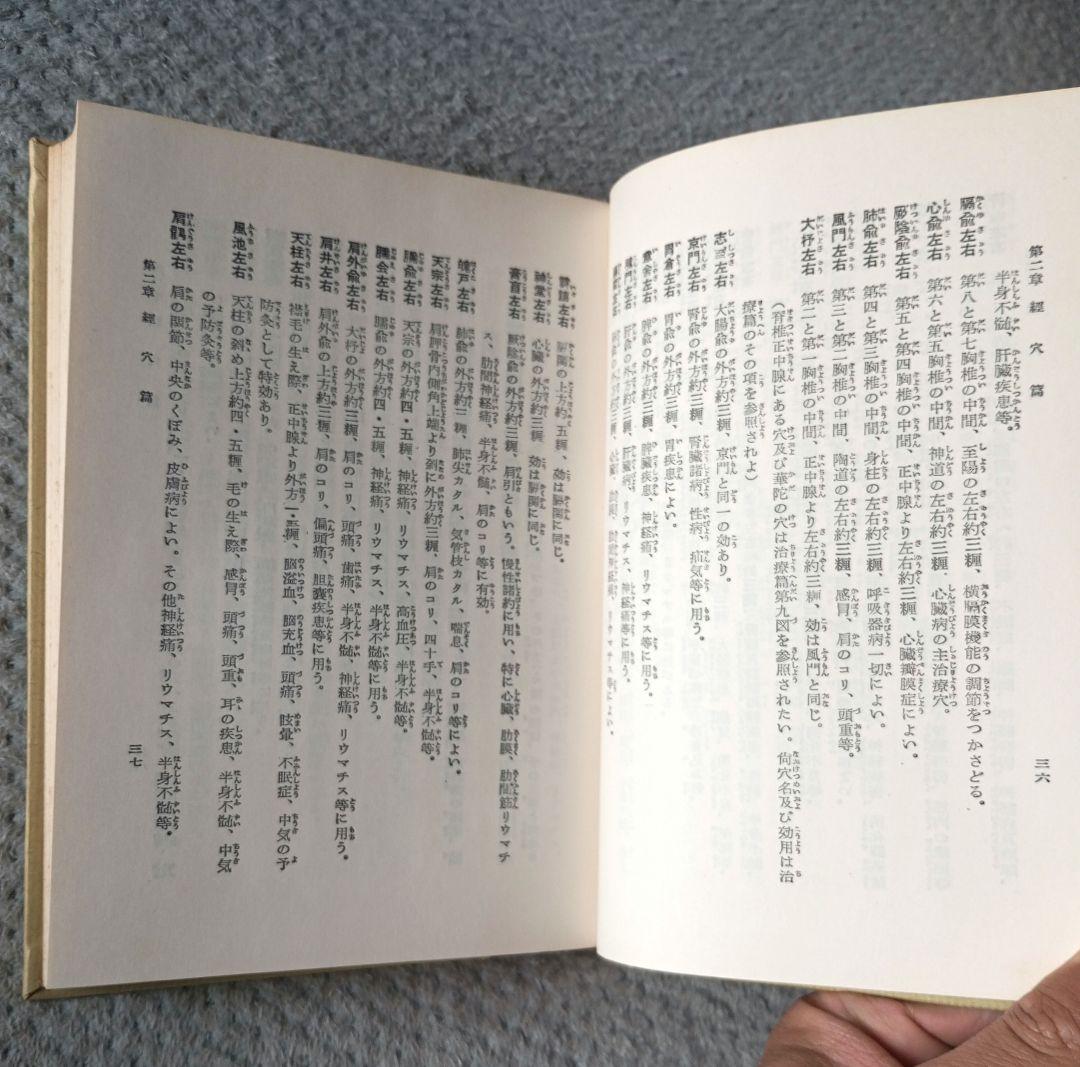 第二章 經穴篇
三六
半身不髄、肝臓疾患等。
膈兪左右 第八と第七胸椎の中間、至陽の左右約三糎、横隔膜機能の調節をつかさどる。
心兪左右 第六と第五胸椎の中間、神道の左右約三糎、心臓病の主治療穴。
厥陰兪左右 第五と第四胸椎の中間、正中腺より左右約三糎、心臓瓣膜症によい。
肺兪左右 第四と第三胸椎の中間、身柱の左右約三糎、呼吸器病一切によい。
風門左右 第三と第二胸椎の中間、陶道の左右約三糎、感冒、肩のコリ、頭重等。
大杼左右 第二と第一胸椎の中間、正中腺より左右約三糎、効は風門と同じ。
(脊椎正中腺にある穴及び華陀の穴は治療篇第九図を参照されたい。尙穴名及び効用は治
療篇のその項を参照されよ)
志室左右 大腸兪の外方約三糎、京門と同一の効あり。
京門左右 腎兪の外方約三糎、腎臓諸病、性病、疝気等に用う。
胃倉左右 胃兪の外方約三糎、胃疾患によい。
意舍左右 脾兪の外方約三糎、脾臓疾患、神経痛、リウマチス等に用う。
左右 肝兪の外方約三糎、肝臓病、リウマチス、神経痛等に用う。
譩譆左右 膈関の上方約五糎、効は膈関に同じ。
神堂左右 心臓の外方約三糎、効は膈関に同じ。
膏肓左右 厥陰兪の外方約三糎、肩引ともいう。慢性諸病に用い、特に心臓、肋膜、肋間筋リウマチ
ス、肋間神経痛、半身不髄、肩のコリ等に有効。
魄戸左右 肺兪の外方約三糎、肺尖カタル、気管枝カタル、喘息、肩のコリ等によい。
天宗左右 肩胛骨内側角上端より斜に外方約三糎、肩のコリ、四十手、半身不髄等。
臑兪左右 天宗の外方約四・五糎、神経痛、リウマチス、高血圧、半身不髄等。
臑会左右 臑兪の外方約四・五糎、神経痛、リウマチス、半身不髄等に用う。
肩外兪左右 大杼の外方約三糎、肩のコリ、頭痛、歯痛、半身不髄、神経痛、リウマチス等に用う。
肩井左右 肩外兪の上方約三糎、肩のコリ、偏頭痛、胆嚢疾患等に用う。
天柱左右 襟毛の生え際、正中腺より外方一・五糎、脳溢血、脳充血、頭痛、眩暈、不眠症、中気の予
防灸として特効あり。
風池左右 天柱の斜め上方約四・五糎、毛の生え際、感冒、頭痛、頭重、耳の疾患、半身不髄、中気
の予防灸等。
肩髃左右 肩の関節、中央のくぼみ、皮膚病によい。その他神経痛、リウマチス、半身不髄等。
第二章 經穴篇
三七